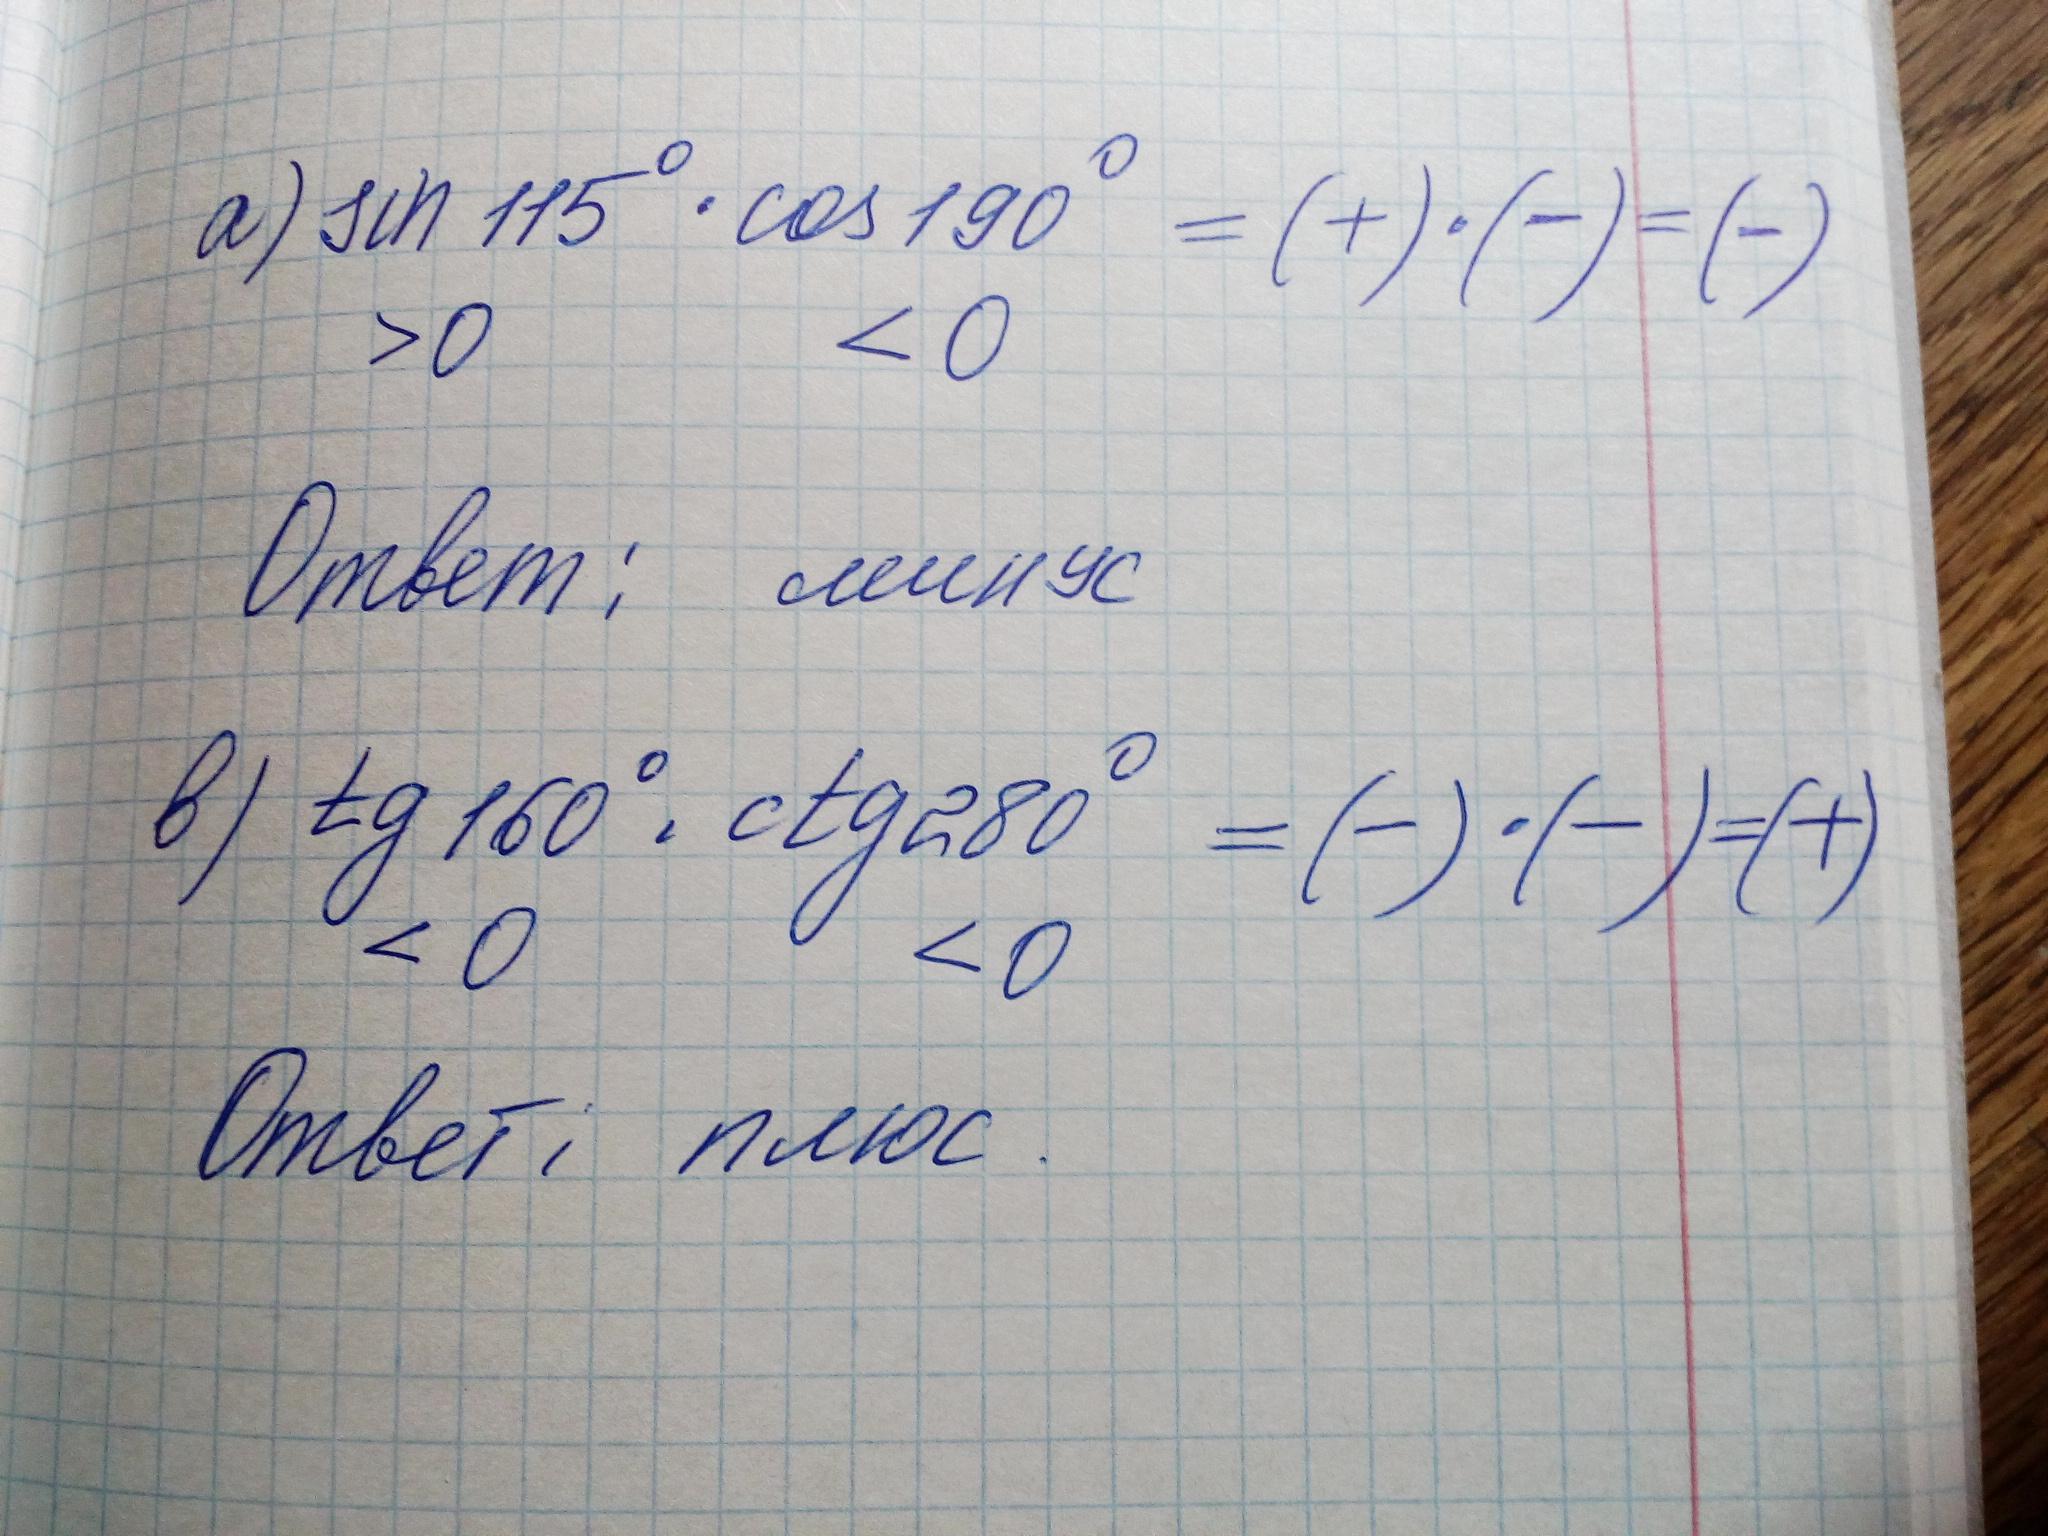 а) sin 115° · cos 190° = (+) · (-) = (-)
>0 <0
Ответ: минус
в) tg 160° · ctg 280° = (-) · (-) = (+)
<0 <0
Ответ: плюс.